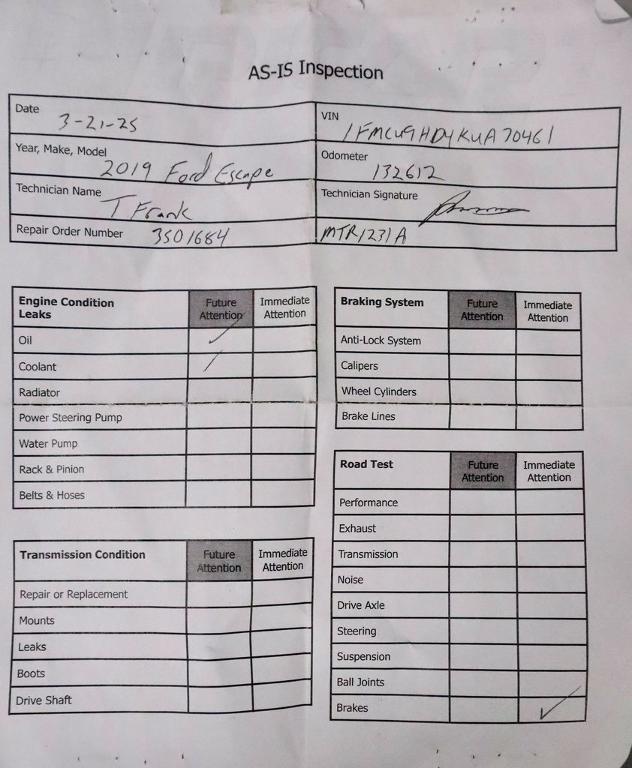 AS-IS Inspection
Date 3-21-25
VIN 1FMCU9HD4KUA70461
Year, Make, Model 2019 Ford Escape
Odometer 132612
Technician Name T Frank
Technician Signature
Repair Order Number 3501684
MTR1231A
Engine Condition Leaks Future Attention Immediate Attention
Oil ✓
Coolant /
Radiator
Power Steering Pump
Water Pump
Rack & Pinion
Belts & Hoses
Transmission Condition Future Attention Immediate Attention
Repair or Replacement
Mounts
Leaks
Boots
Drive Shaft
Braking System Future Attention Immediate Attention
Anti-Lock System
Calipers
Wheel Cylinders
Brake Lines
Road Test Future Attention Immediate Attention
Performance
Exhaust
Transmission
Noise
Drive Axle
Steering
Suspension
Ball Joints
Brakes ✓